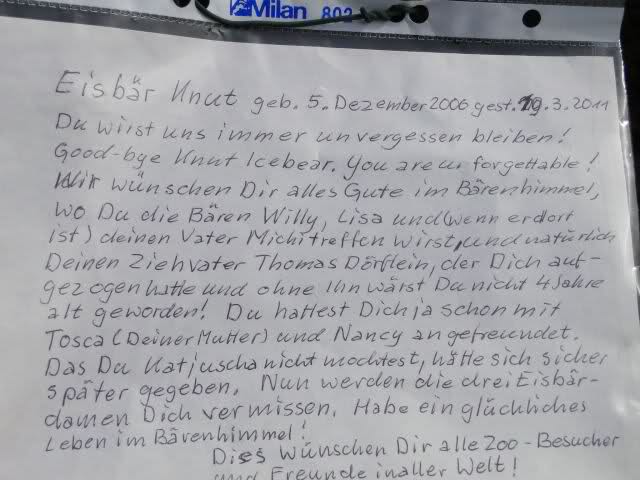 Milan 802
Eisbär Knut geb. 5. Dezember 2006 gest. 19.3.2011
Du wirst uns immer unvergessen bleiben!
Good-bye Knut Icebear. You are un forgettable!
Wir wünschen Dir alles Gute im Bärenhimmel,
wo Du die Bären Willy, Lisa und (wenn er dort
ist) deinen Vater Michi treffen wirst, und natürlich
Deinen Ziehvater Thomas Dörflein, der Dich auf-
gezogen hatte und ohne Ihn wärst Du nicht 4 Jahre
alt geworden! Du hattest Dich ja schon mit
Tosca (Deiner Mutter) und Nancy angefreundet.
Das Du Katjuscha nicht mochtest, hätte sich sicher
später gegeben. Nun werden die drei Eisbär-
damen Dich vermissen. Habe ein glückliches
Leben im Bärenhimmel!
Dies wünschen Dir alle Zoo-Besucher
und Freunde in aller Welt!